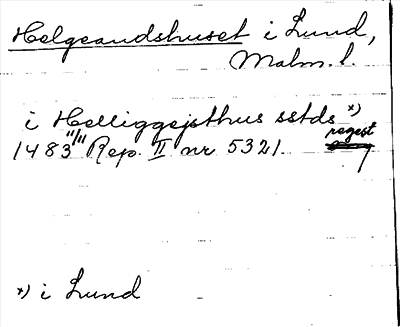 Helgeandshuset i Lund,
Malm. l.
i Helliggejsthus sstds *)
regest
1483 11/11 Rep. II nr 5321.
*) i Lund